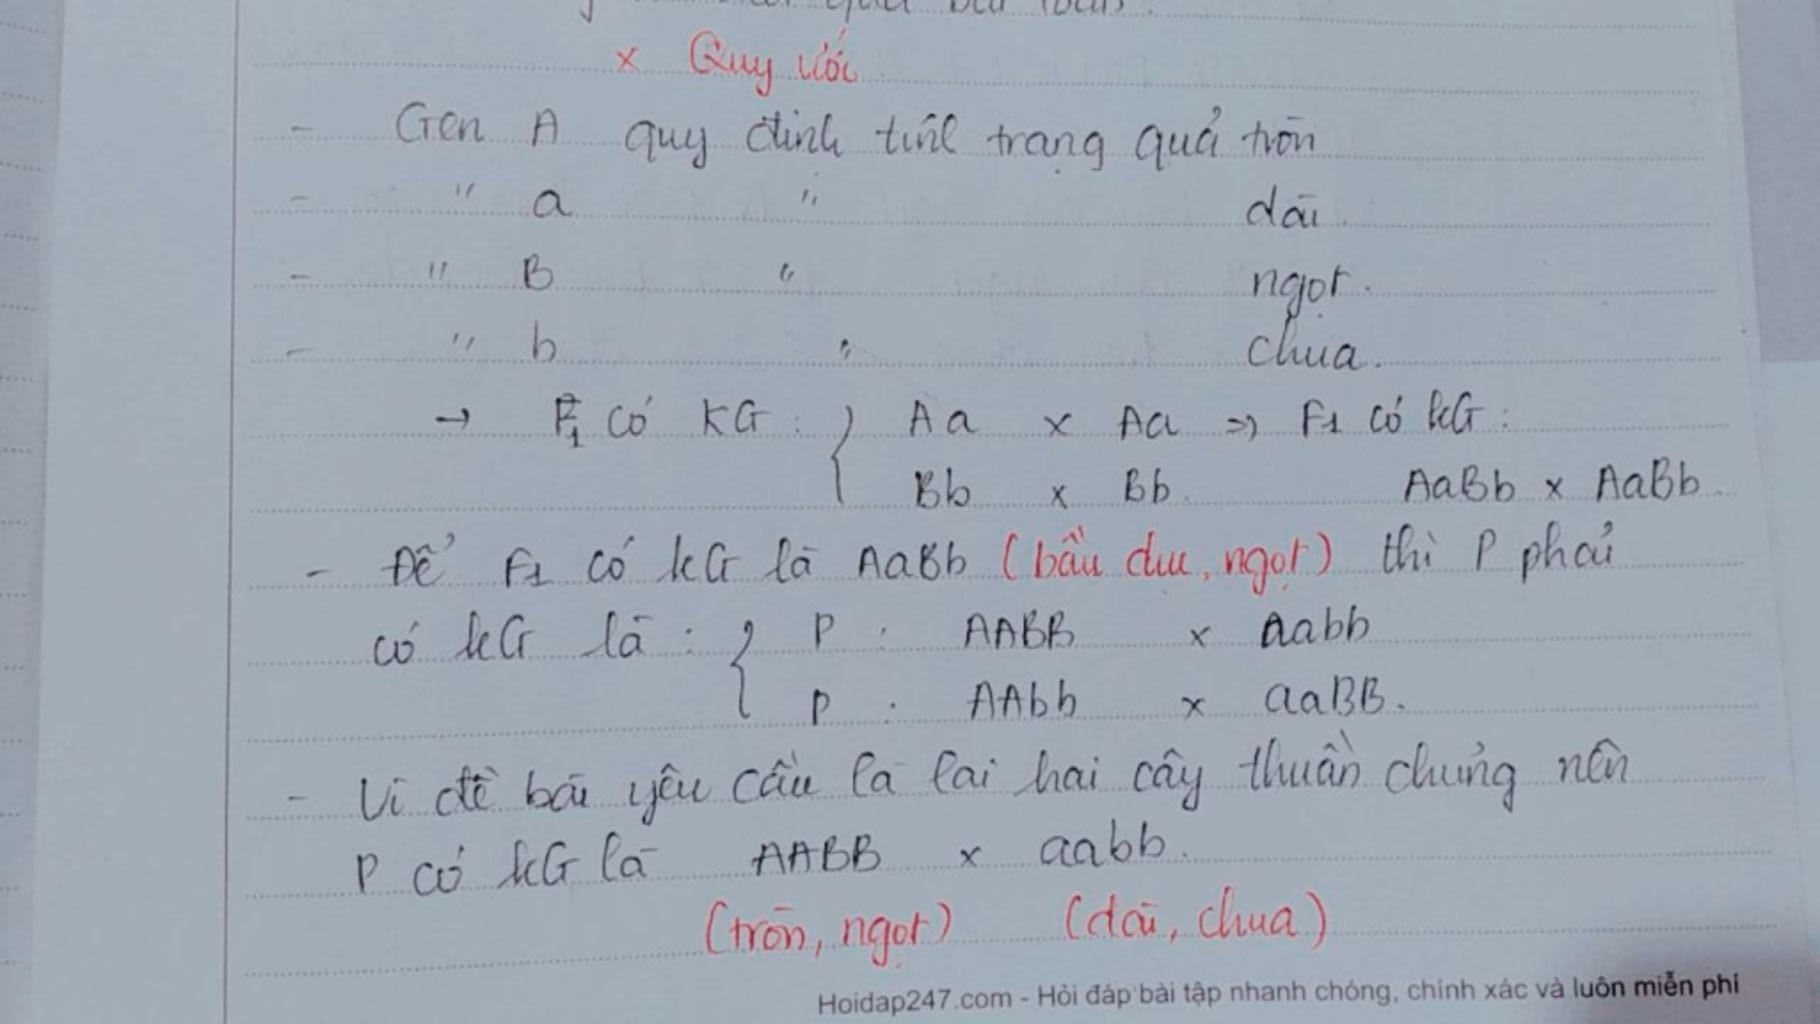 quả bầu
x Quy ước
- Gen A quy định tính trạng quả tròn
- " a " dài
- " B " ngọt.
- " b " chua.
→ F1 có KG : { Aa x Aa => F1 có kG :
Bb x Bb. AaBb x AaBb
- Để F1 có kG là AaBb (bầu dục, ngọt) thì P phải
có kG là : { P : AABB x aabb
P : AAbb x aaBB.
- Vì đề bài yêu cầu là lai hai cây thuần chủng nên
P có kG là AABB x aabb.
(tròn, ngọt) (dài, chua)
Hoidap247.com - Hỏi đáp bài tập nhanh chóng, chính xác và luôn miễn phí